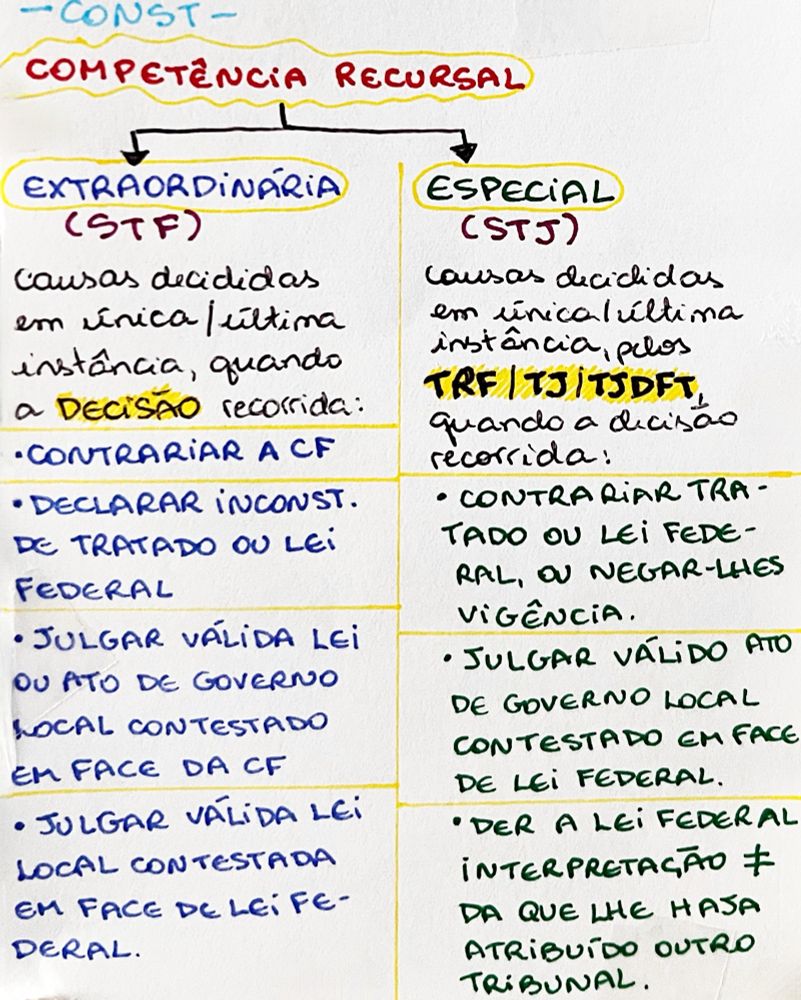 -CONST-
COMPETÊNCIA RECURSAL
EXTRAORDINÁRIA
(STF)
causas decididas
em única/última
instância, quando
a DECISÃO recorrida:
• CONTRARIAR A CF
• DECLARAR INCONST.
DE TRATADO OU LEI
FEDERAL
• JULGAR VÁLIDA LEI
OU ATO DE GOVERNO
LOCAL CONTESTADO
EM FACE DA CF
• JULGAR VÁLIDA LEI
LOCAL CONTESTADA
EM FACE DE LEI FE-
DERAL.
ESPECIAL
(STJ)
causas decididas
em única/última
instância, pelos
TRF/TJ/TJDFT,
quando a decisão
recorrida:
• CONTRARIAR TRA-
TADO OU LEI FEDE-
RAL, OU NEGAR-LHES
VIGÊNCIA.
• JULGAR VÁLIDO ATO
DE GOVERNO LOCAL
CONTESTADO EM FACE
DE LEI FEDERAL.
• DER A LEI FEDERAL
INTERPRETAÇÃO ≠
DA QUE LHE HAJA
ATRIBUÍDO OUTRO
TRIBUNAL.